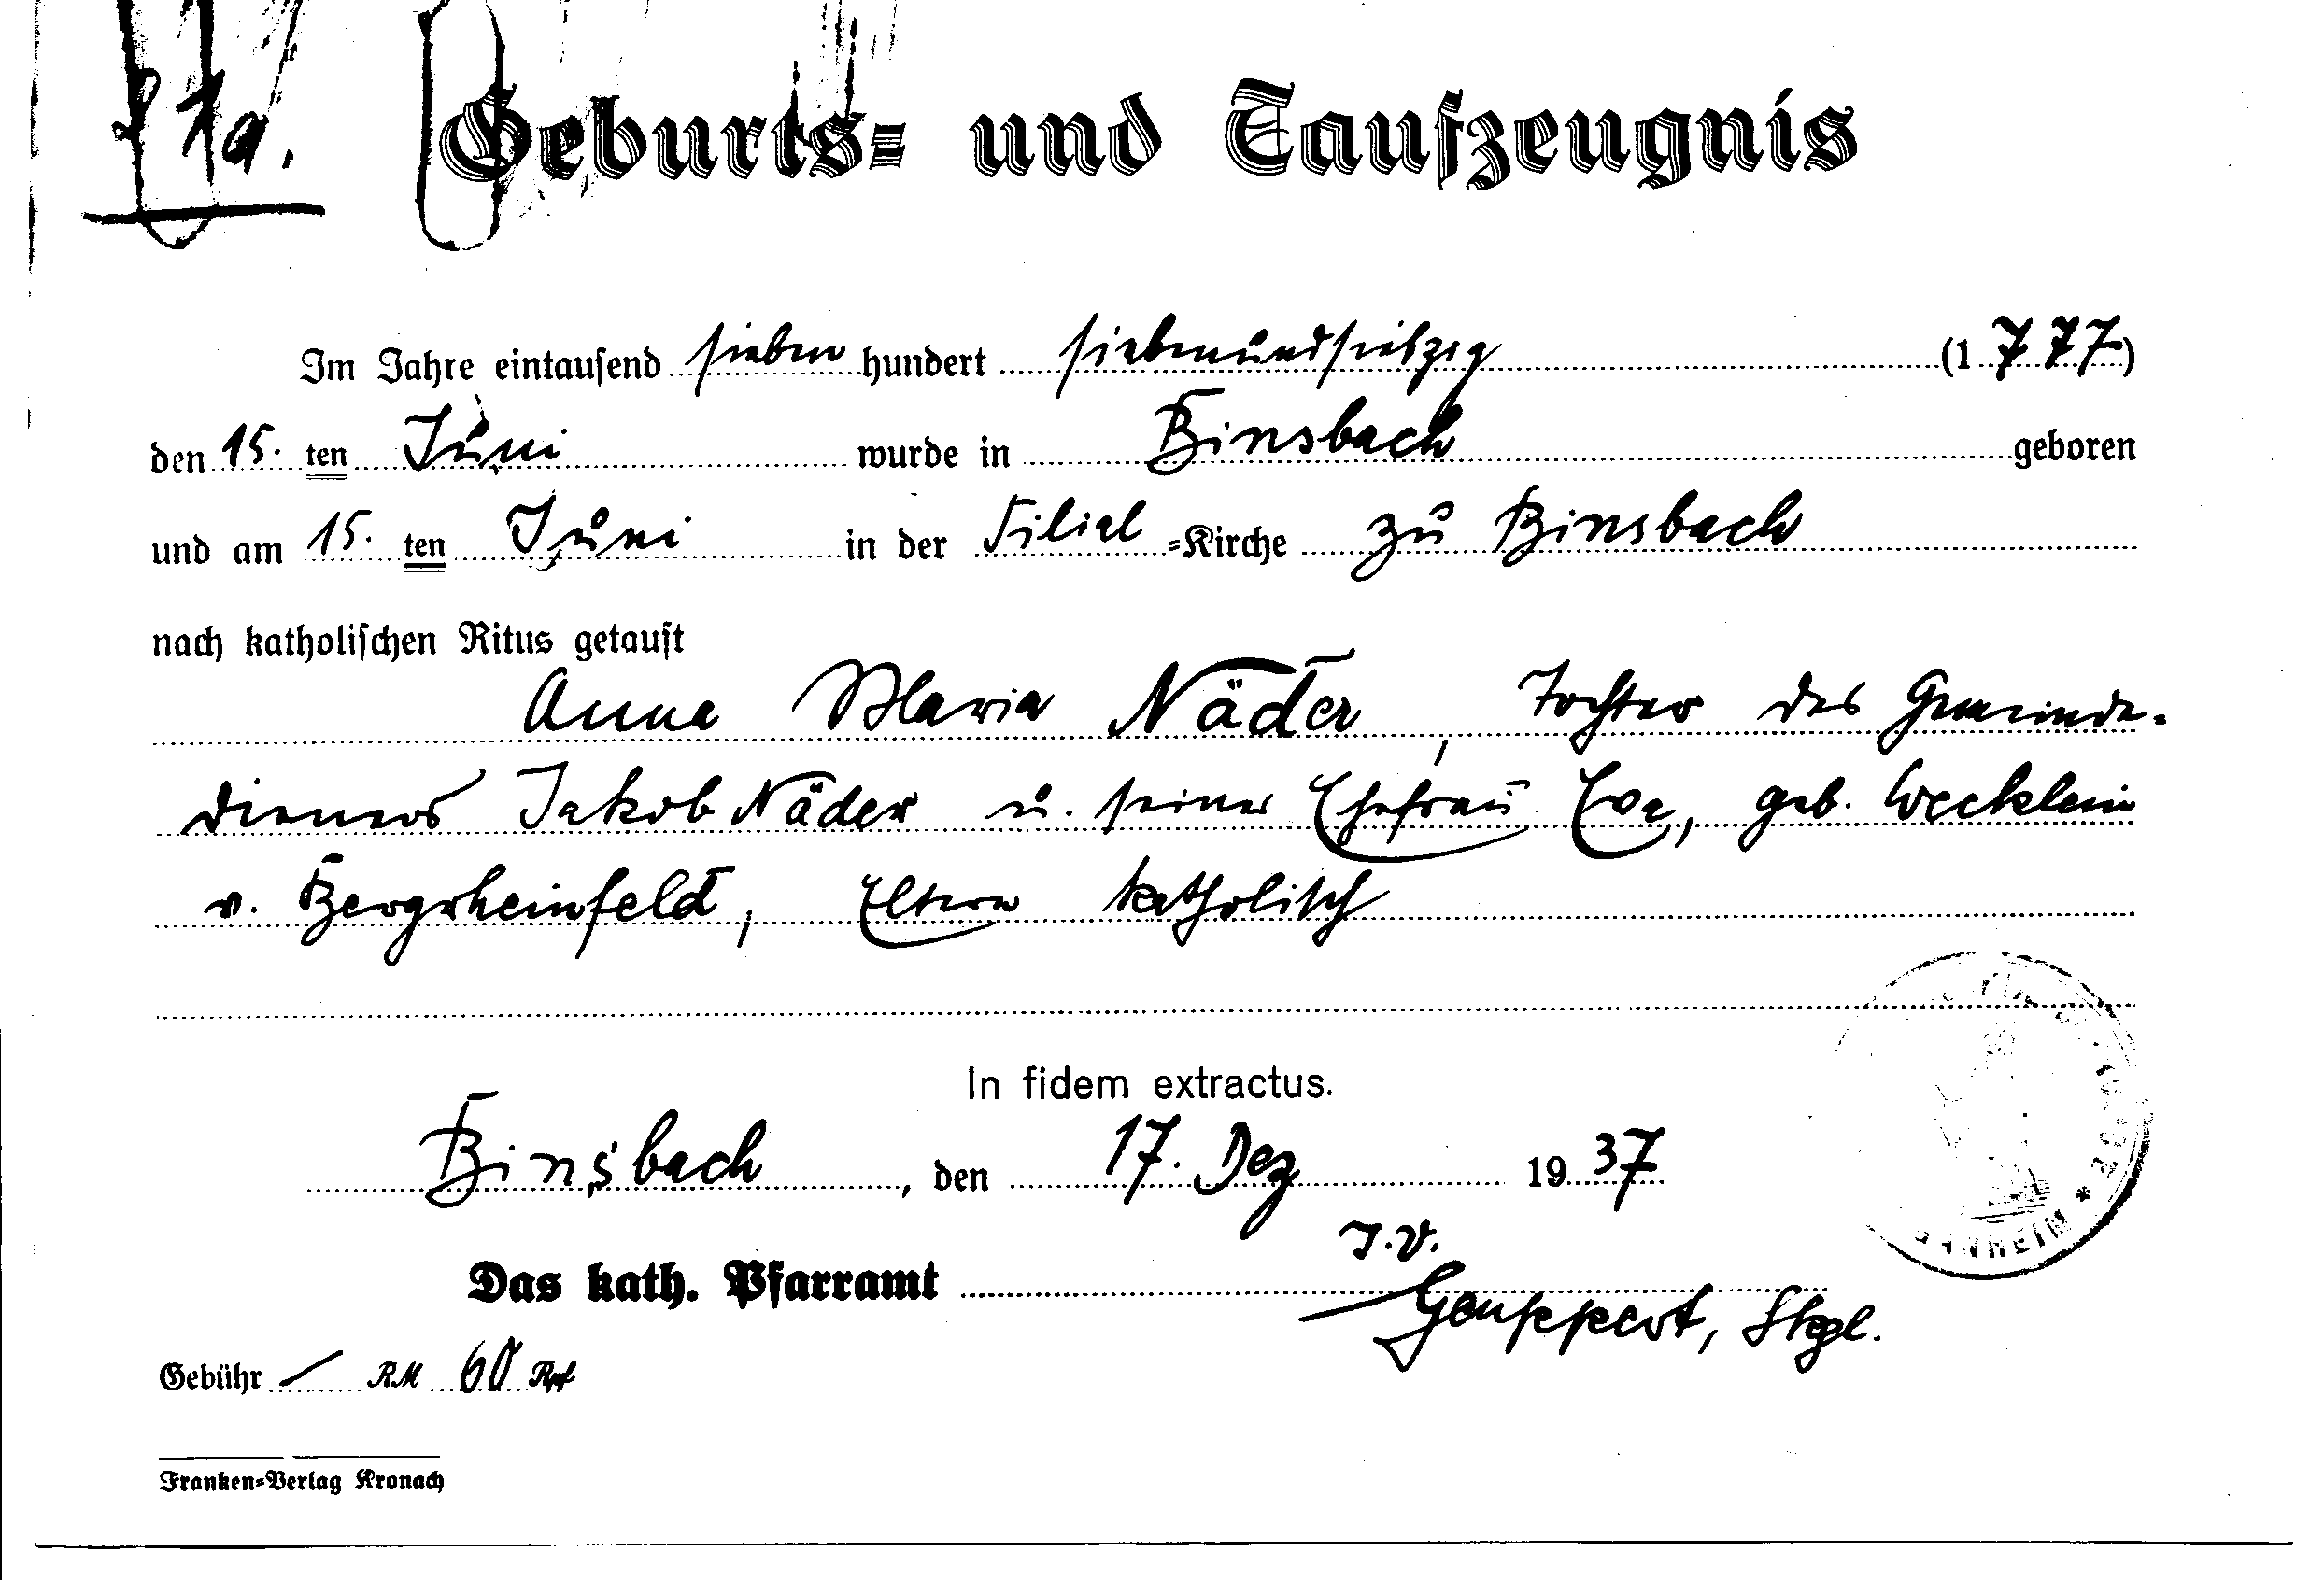 Geburts- und Taufzeugnis
Im Jahre eintausend sieben hundert siebenundsiebzig (1777)
den 15. ten Juni wurde in Binsbach geboren
und am 15. ten Juni in der Filial-Kirche zu Binsbach
nach katholischen Ritus getauft
Anna Maria Näder, Tochter des Gemeinde-
dieners Jakob Näder u. seiner Ehefrau Eva, geb. Wecklein
v. Bergrheinfeld, Eltern katholisch
In fidem extractus.
Binsbach, den 17. Dez 1937
I.V.
Das kath. Pfarramt
Gebühr / RM 60 Rpf
Franken-Verlag Kronach